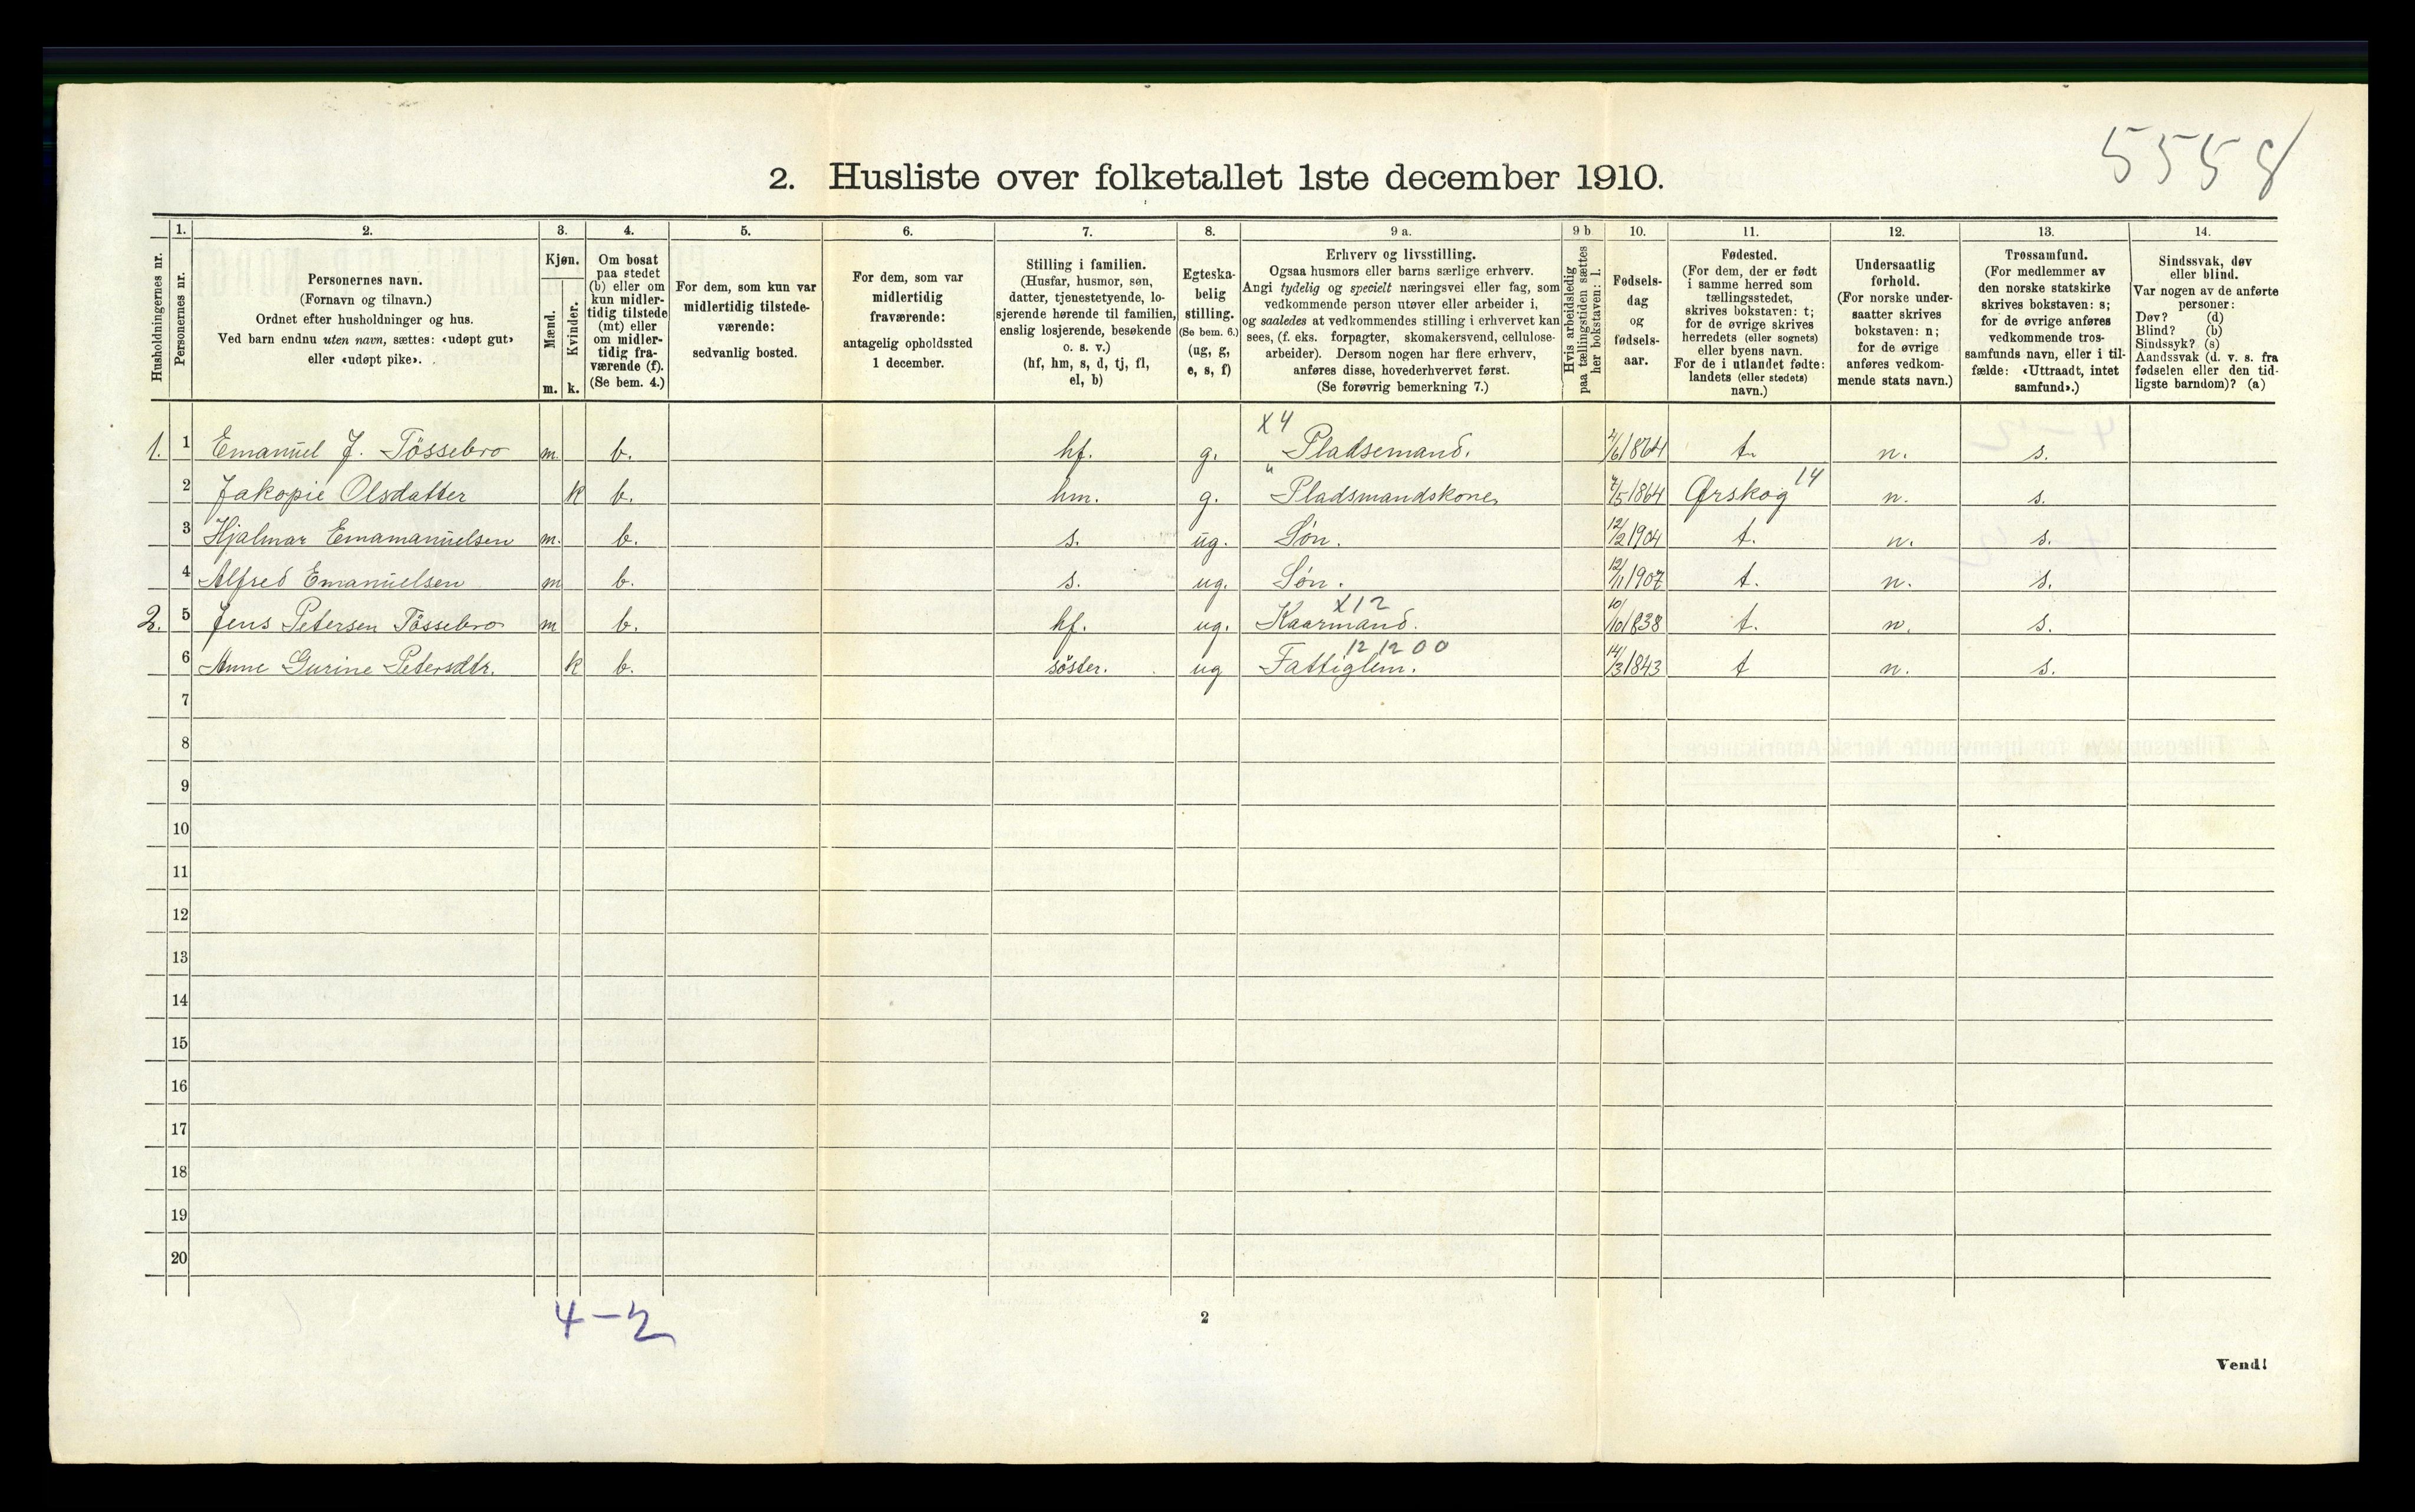 5558
2. Husliste over folketallet 1ste december 1910.
Husholdningernes nr.
1.
Personernes nr.
2.
Personernes navn.
(Fornavn og tilnavn.)
Ordnet efter husholdninger og hus.
Ved barn endnu uten navn, sættes: «udøpt gut»
eller «udøpt pike».
3.
Kjøn.
Mænd.
m.
Kvinder.
k.
4.
Om bosat
paa stedet
(b) eller om
kun midler-
tidig tilstede
(mt) eller
om midler-
tidig fra-
værende (f).
(Se bem. 4.)
5.
For dem, som kun var
midlertidig tilstede-
værende:
sedvanlig bosted.
6.
For dem, som var
midlertidig
fraværende:
antagelig opholdssted
1 december.
7.
Stilling i familien.
(Husfar, husmor, søn,
datter, tjenestetyende, lo-
sjerende hørende til familien,
enslig losjerende, besøkende
o. s. v.)
(hf, hm, s, d, tj, fl,
el, b)
8.
Egteska-
belig
stilling.
(Se bem. 6.)
(ug, g,
e, s, f)
9 a.
Erhverv og livsstilling.
Ogsaa husmors eller barns særlige erhverv.
Angi tydelig og specielt næringsvei eller fag, som
vedkommende person utøver eller arbeider i,
og saaledes at vedkommendes stilling i erhvervet kan
sees, (f. eks. forpagter, skomakersvend, cellulose-
arbeider). Dersom nogen har flere erhverv,
anføres disse, hovederhvervet først.
(Se forøvrig bemerkning 7.)
9 b
Hvis arbeidsledig
paa tællingstiden sættes
her bokstaven: l.
10.
Fødsels-
dag
og
fødsels-
aar.
11.
Fødested.
(For dem, der er født
i samme herred som
tællingsstedet,
skrives bokstaven: t;
for de øvrige skrives
herredets (eller sognets)
eller byens navn.
For de i utlandet fødte:
landets (eller stedets)
navn.)
12.
Undersaatlig
forhold.
(For norske under-
saatter skrives
bokstaven: n;
for de øvrige
anføres vedkom-
mende stats navn.)
13.
Trossamfund.
(For medlemmer av
den norske statskirke
skrives bokstaven: s;
for de øvrige anføres
vedkommende tros-
samfunds navn, eller i til-
fælde: «Uttraadt, intet
samfund».)
14.
Sindssvak, døv
eller blind.
Var nogen av de anførte
personer:
Døv? (d)
Blind? (b)
Sindssyk? (s)
Aandssvak (d. v. s. fra
fødselen eller den tid-
ligste barndom)? (a)
x4
1. 1 Emanuel J. Tössebro m. b. hf. g. Pladsemand. 1864 t. n. s.
2 Jakopie Olsdatter k b. hm. g. " Pladsmandskone. 7/5 1864 Ørskog 14 n. s.
3 Hjalmar Emamanuelsen m. b. s. ug. Søn. 12/2 1904 t. n. s.
4 Alfred Emanuelsen m b. s. ug. Søn. 12/11 1907 t. n. s.
x12
2. 5 Jens Petersen Tössebro m b. hf. ug. Kaarmand. 10/10 1838 t. n. s.
12 1200
6 Anne Gurine Petersdtr. k b. söster. ug Fattiglem. 14/3 1843 t n. s.
7
8
9
10
11
12
13
14
15
16
17
18
19
20
4-2
2
Vend!